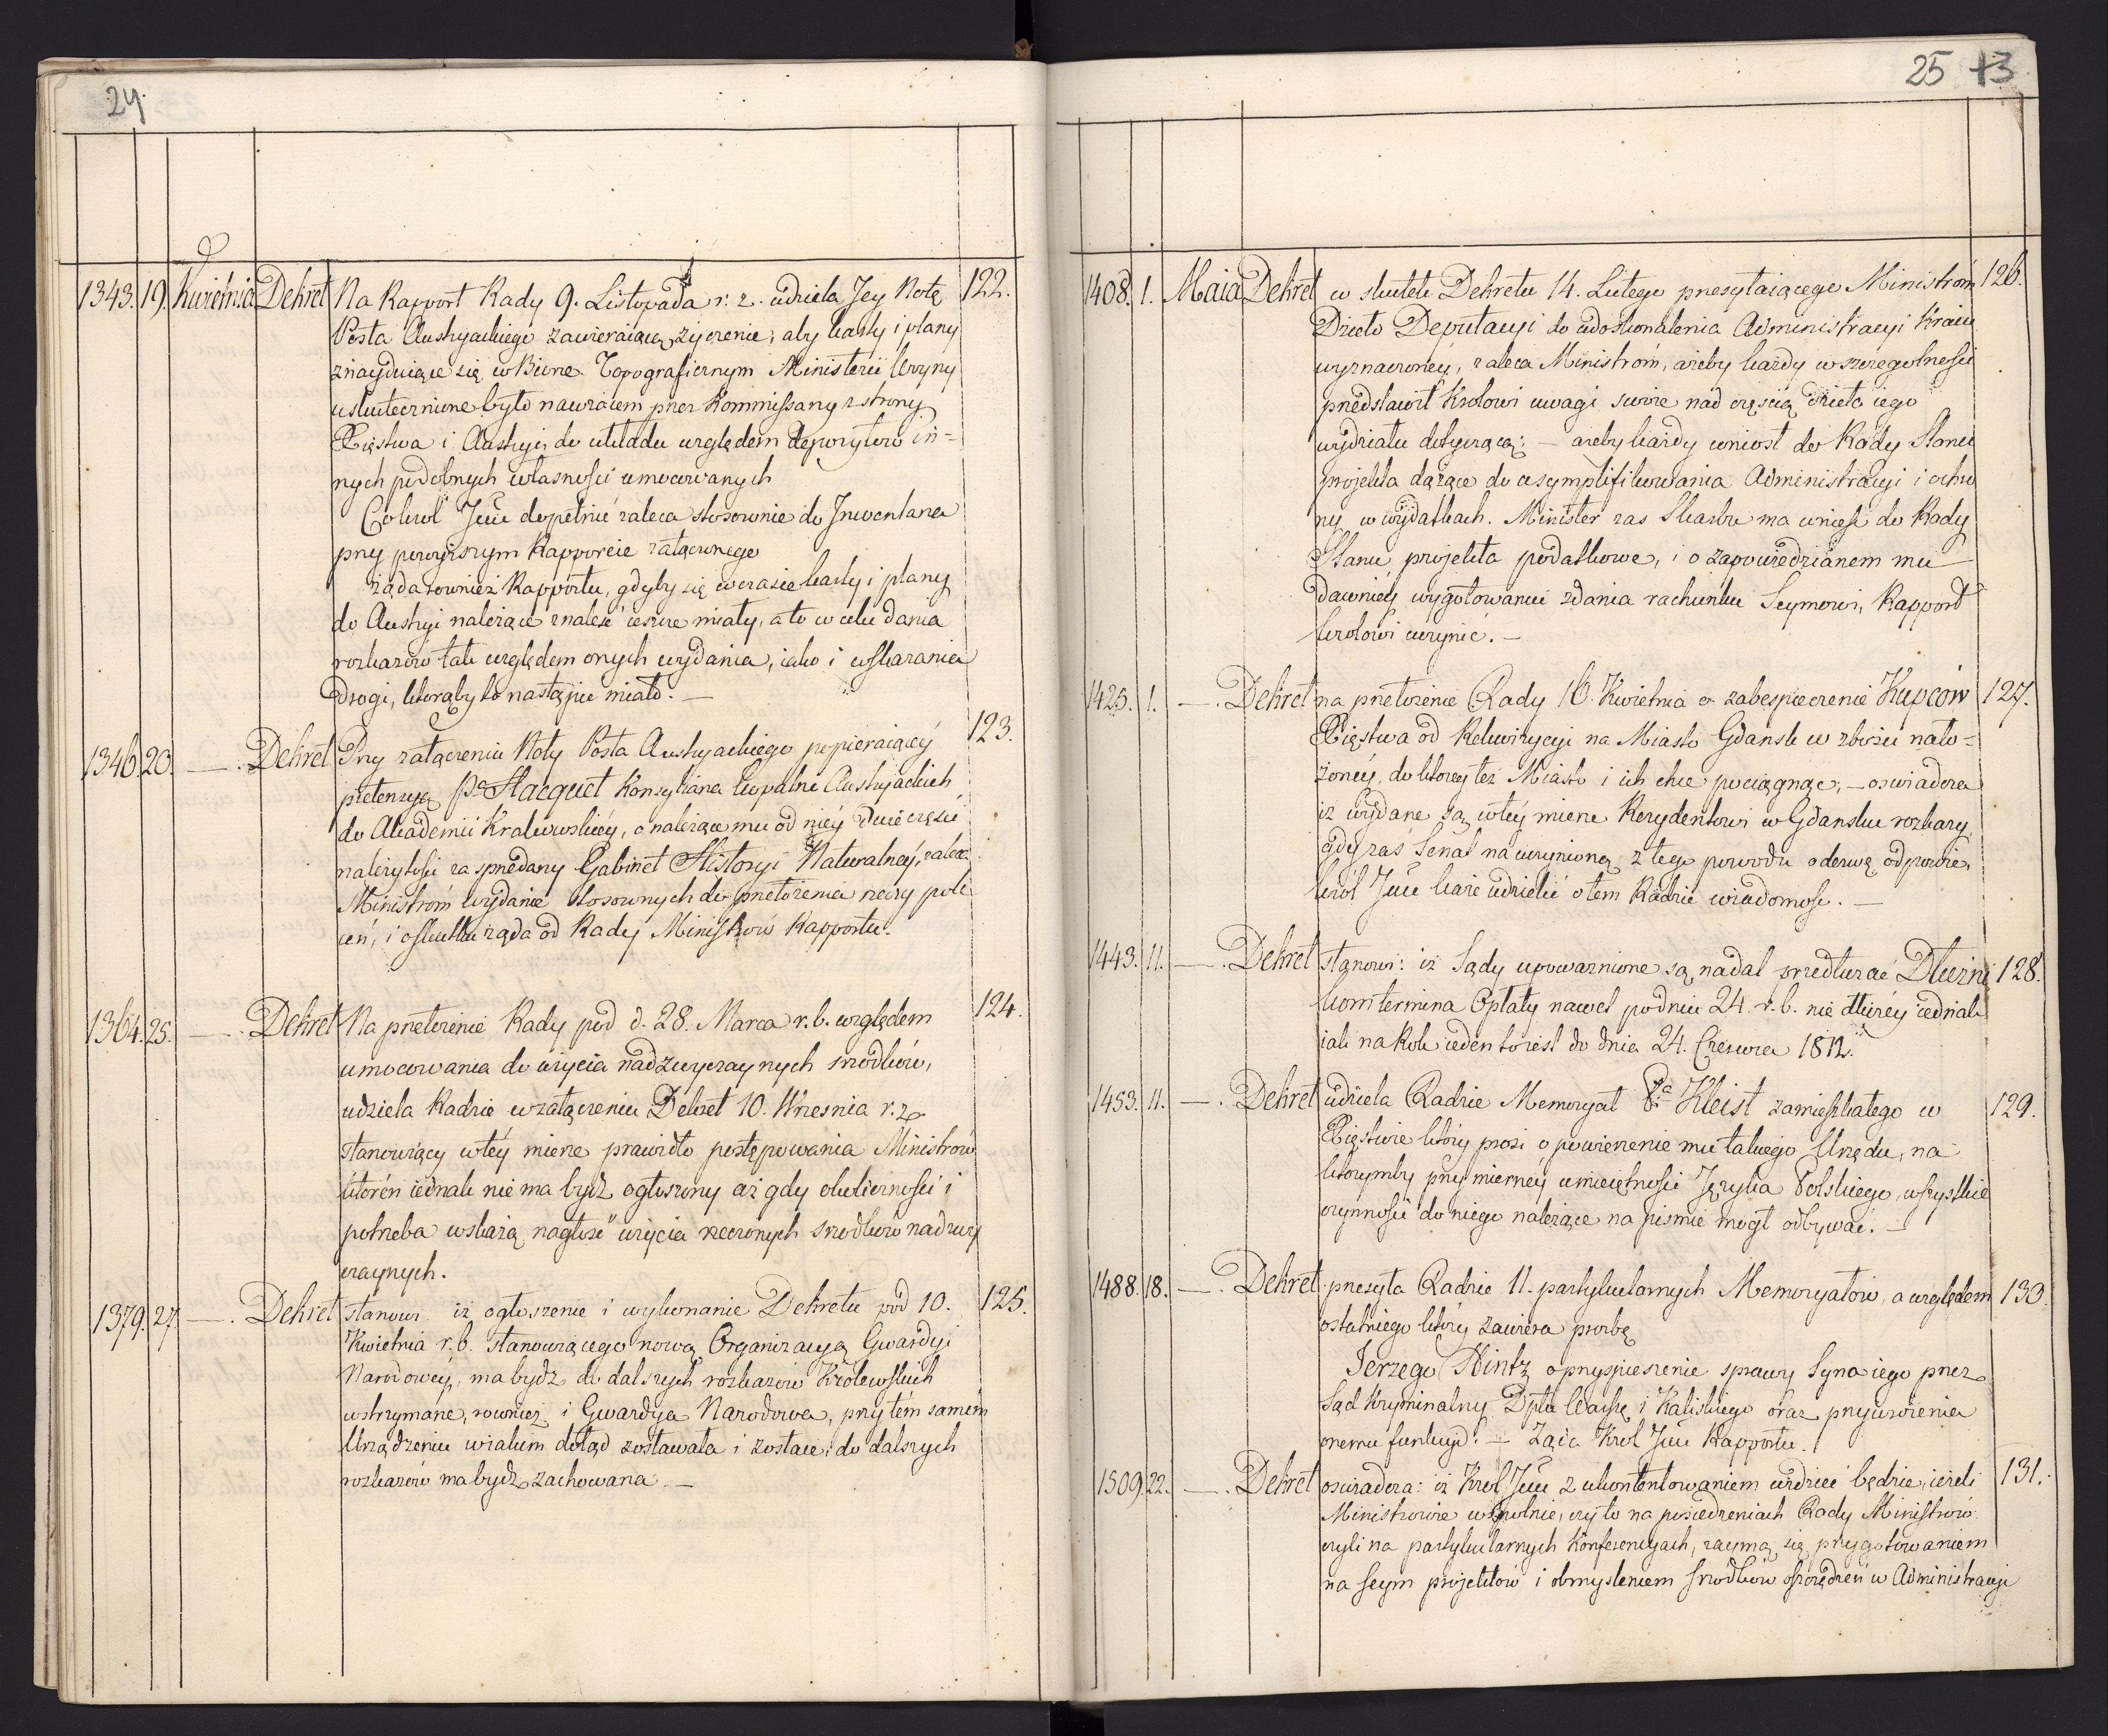 24.
1343. 19. Kwietnia Dekret Na Rapport Rady 9. Listopada r. z. udziela Jey Notę 122.
Posła Austryackiego zawieraiącą życzenie, aby karty i plany
znayduiące się w Biurze Topograficznym Ministerii Woyny
uskutecznione było nawzaiem przez Kommissarzy z strony
Xięstwa i Austryi do układu względem depozytów in=
nych podobnych własności umocowanych
Co Krol Jmć dopełnić zaleca stosownie do Inwentarza
przy powyższym Rapporcie załączonego
żąda rownież Rapportu, gdyby się w czasie karty i plany
do Austryi należące znaleść ieszcze miały, a to w celu dania
rozkazów tak względem onych wydania, iako i wskazania
drogi, którąby to nastąpić miało. —
1346. 20. —. Dekret Przy załączeniu Noty Posła Austryackiego popieraiącéy 123.
pretensyą Pa Hacquet Konsyliarza Kopalni Austryackich
do Akademii Krakowskiéy, o należące mu od niéy dwie części
należytości za sprzedany Gabinet Historyi Naturalnéy, zaleca
Ministróm wydanie stosownych do przełożenia rzeczy pole
ceń, i o skutku żąda od Rady Ministrów Rapportu.
1364. 25. —. Dekret Na przełożenie Rady pod d. 28. Marca r. b. względem 124.
umocowania do użycia nadzwyczaynych srodków,
udziela Radzie w załączeniu Dekret 10. Wrzesnia r. z.
stanowiący w téy mierze prawidło postępowania Ministrów
któren iednak nie ma bydź ogłoszony aż gdy okoliczności i
potrzeba wskażą nagłość użycia rzeczonych srodków nadzwy
czaynych.
1379. 27. —. Dekret stanowi iż ogłoszenie i wykonanie Dekretu pod 10. 125.
Kwietnia r. b. stanowiącego nową Organizacyą Gwardyi
Narodowéy, ma bydź do dalszych rozkazów Królewskich
wstrzymane, rownież i Gwardya Narodowa, przy tém samém
Urządzeniu w iakim dotąd zostawała i zostaie, do dalszych
rozkazów ma bydź zachowana. —
25 13
1408. 1. Maia Dekret w skutek Dekretu 14. Lutego przesyłaiącego Ministróm 126.
Dzieło Deputacyi do udoskonalenia Administracyi Kraiu
wyznaczonéy, zaleca Ministróm, ażeby każdy w szczegolności
przedstawił Krolowi uwagi swoie nad częscią dzieła iego
wydziału dotyczącą: — ażeby każdy wniosł do Rady Stanu
projekta dążące do usymplifikowania Administracyi i ochro
ny w wydatkach. Minister zas Skarbu ma wnieść do Rady
Stanu projekta podatkowe, i o zapowiedzianem mu
dawniéy wygotowaniu zdania rachunku Seymowi, Rapport
Krolowi uczynić. —
1425. 1. —. Dekret na przełożenie Rady 16. Kwietnia o zabespieczenie Kupców 127.
Xięstwa od Rekwizycyi na Miasto Gdansk w zbożu nało=
żonéy, do któréy też Miasto i ich chce pociągnąć, — oswiadcza
iż wydane są w téy mierze Rezydentowi w Gdansku rozkazy,
gdy zaś Senat na uczynioną z tego powodu odezwę odpowie,
Król Jmć każe udzielić o tem Radzie wiadomość. —
1443. 11. —. Dekret stanowi: iż Sądy upoważnione są nadal przedłużać Dłużni 128.
kom termina Opłaty nawet po dniu 24. r. b. nie dłużéy iednak
iak na Rok ieden to iest do dnia 24. Czerwca 1812.
1453. 11. —. Dekret udziela Radzie Memoryał Pa Kleist zamieszkałego w 129.
Xięstwie który prosi o powierzenie mu takiego Urzędu, na
którymby przy miernéy umieiętności Języka Polskiego, wszystkie
czynności do niego należące na pismie mogł odbywać. —
1488. 18. —. Dekret przesyła Radzie 11. partykularnych Memoryałów, a względem 130.
ostatniego który zawiera prozbę
Jerzego Hintz o przyspieszenie sprawy Syna iego przez
Sąd Kryminalny Dptu Warsz: i Kaliskiego oraz przywrócenia
onemu funkcyi. — Żąda Krol Jmć Rapportu.
1509. 22. —. Dekret oswiadcza: iż Krol Jmć z ukontentowaniem widzieć będzie, ieżeli 131.
Ministrowie wspolnie, czy to na posiedzeniach Rady Ministrów
czyli na partykularnych Konferencyach, zaymą się przygotowaniem
na Seym projektów i obmysleniem srodków oszczędzeń w Administracyi